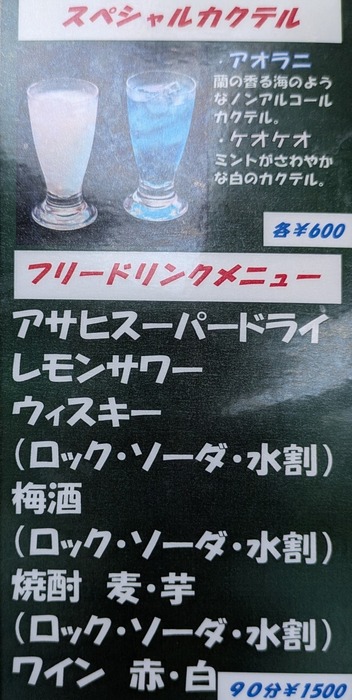 スペシャルカクテル
・アオラニ
蘭の香る海のよう
なノンアルコール
カクテル。
・ケオケオ
ミントがさわやか
な白のカクテル。
各¥600
フリードリンクメニュー
アサヒスーパードライ
レモンサワー
ウィスキー
(ロック・ソーダ・水割)
梅酒
(ロック・ソーダ・水割)
焼酎 麦・芋
(ロック・ソーダ・水割)
ワイン 赤・白
90分¥1500